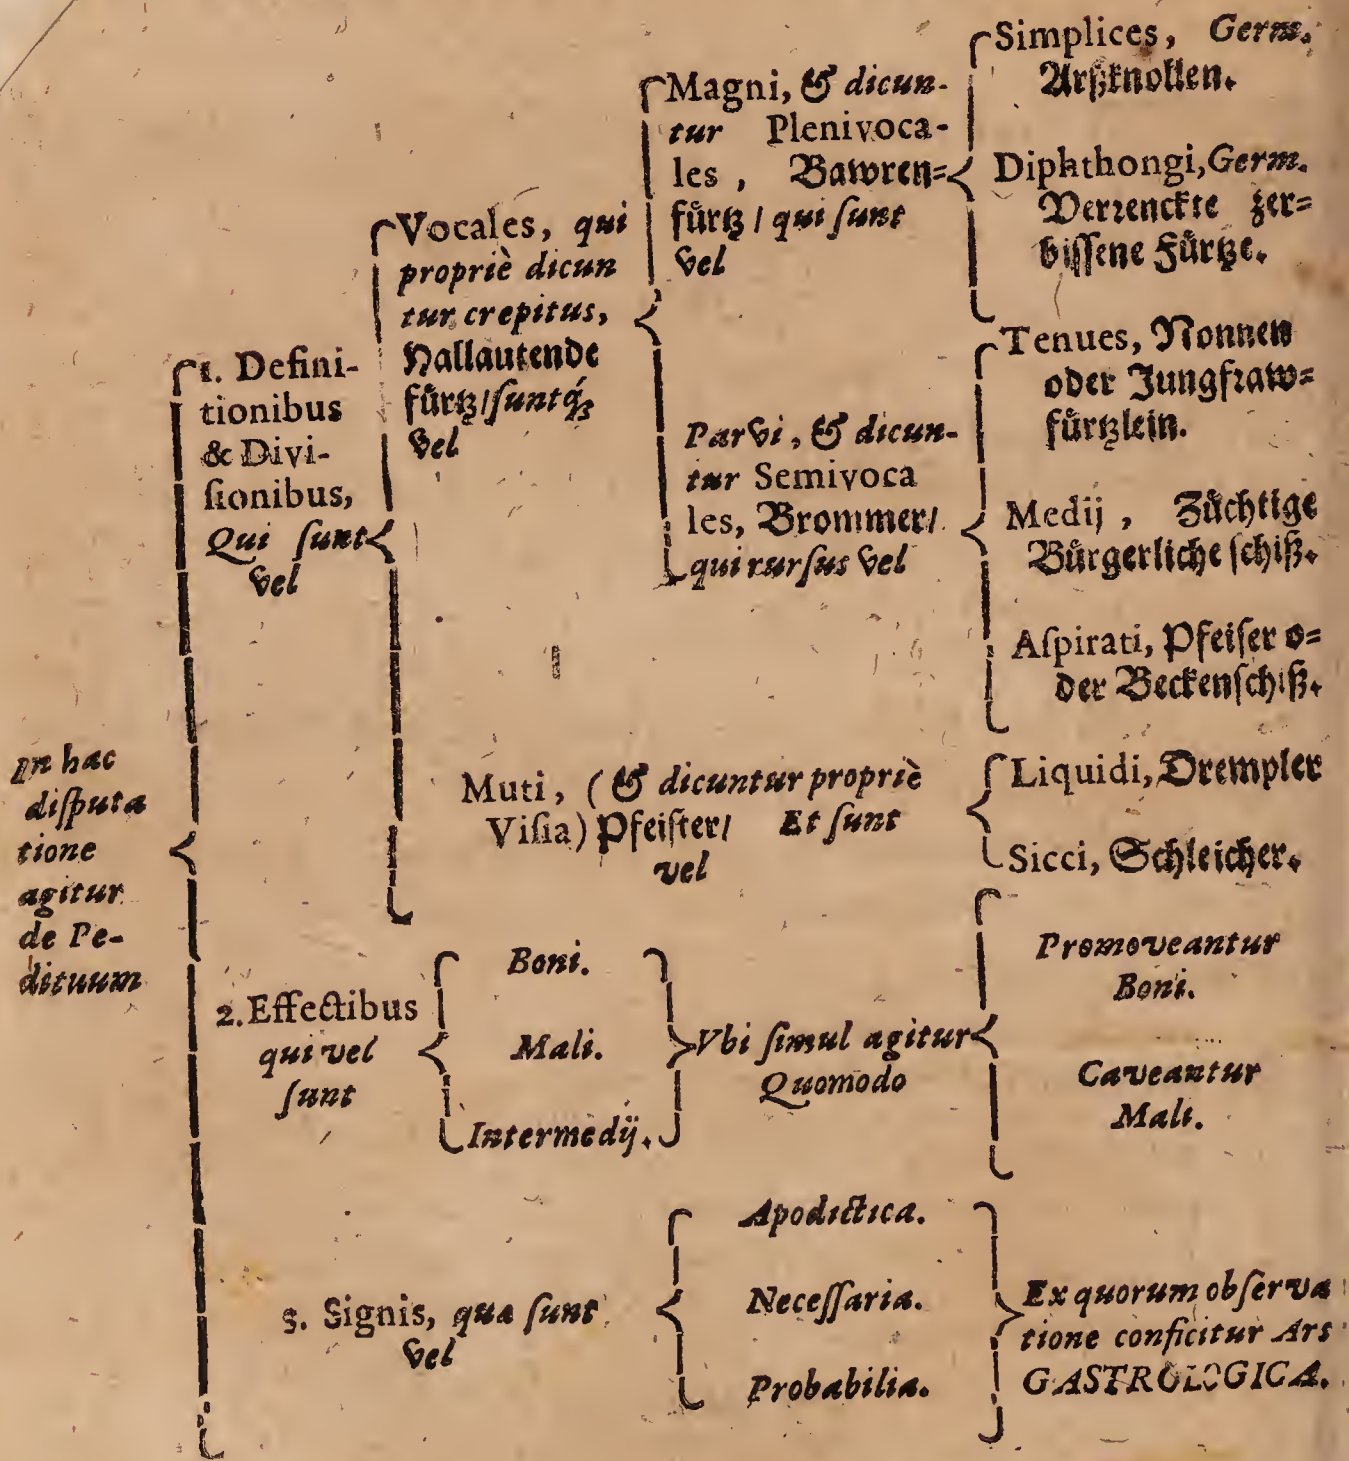 In hac
disputa
tione
agitur
de Pe-
dituum
1. Defini-
tionibus
& Divi-
ſionibus,
Qui ſunt
vel
Vocales, qui
propriè dicun
tur crepitus,
Hallautende
fürtz / ſuntq́;
vel
Magni, & dicun-
tur Plenivoca-
les, Bawren=
fürtz / qui ſunt
vel
Simplices, Germ.
Arßknollen.
Diphthongi, Germ.
Verzenckte zer=
biſſene Fürtze.
Parvi, & dicun-
tur Semivoca
les, Brommer /
qui rurſus vel
Tenues, Nonnen
oder Jungfraw=
fürtzlein.
Medij, Züchtige
Bürgerliche ſchiß.
Aſpirati, Pfeifer o=
der Beckenſchiß.
Muti, (& dicuntur propriè
Viſia) Pfeiſter / Et ſunt
vel
Liquidi, Drempler
Sicci, Schleicher.
2. Effectibus
qui vel
ſunt
Boni.
Mali.
Intermedij.
Vbi ſimul agitur
Quomodo
Promoveantur
Boni.
Caveantur
Mali.
3. Signis, quæ ſunt
vel
Apodictica.
Neceſſaria.
Probabilia.
Ex quorum obſerva
tione conficitur Ars
GASTROLOGICA.